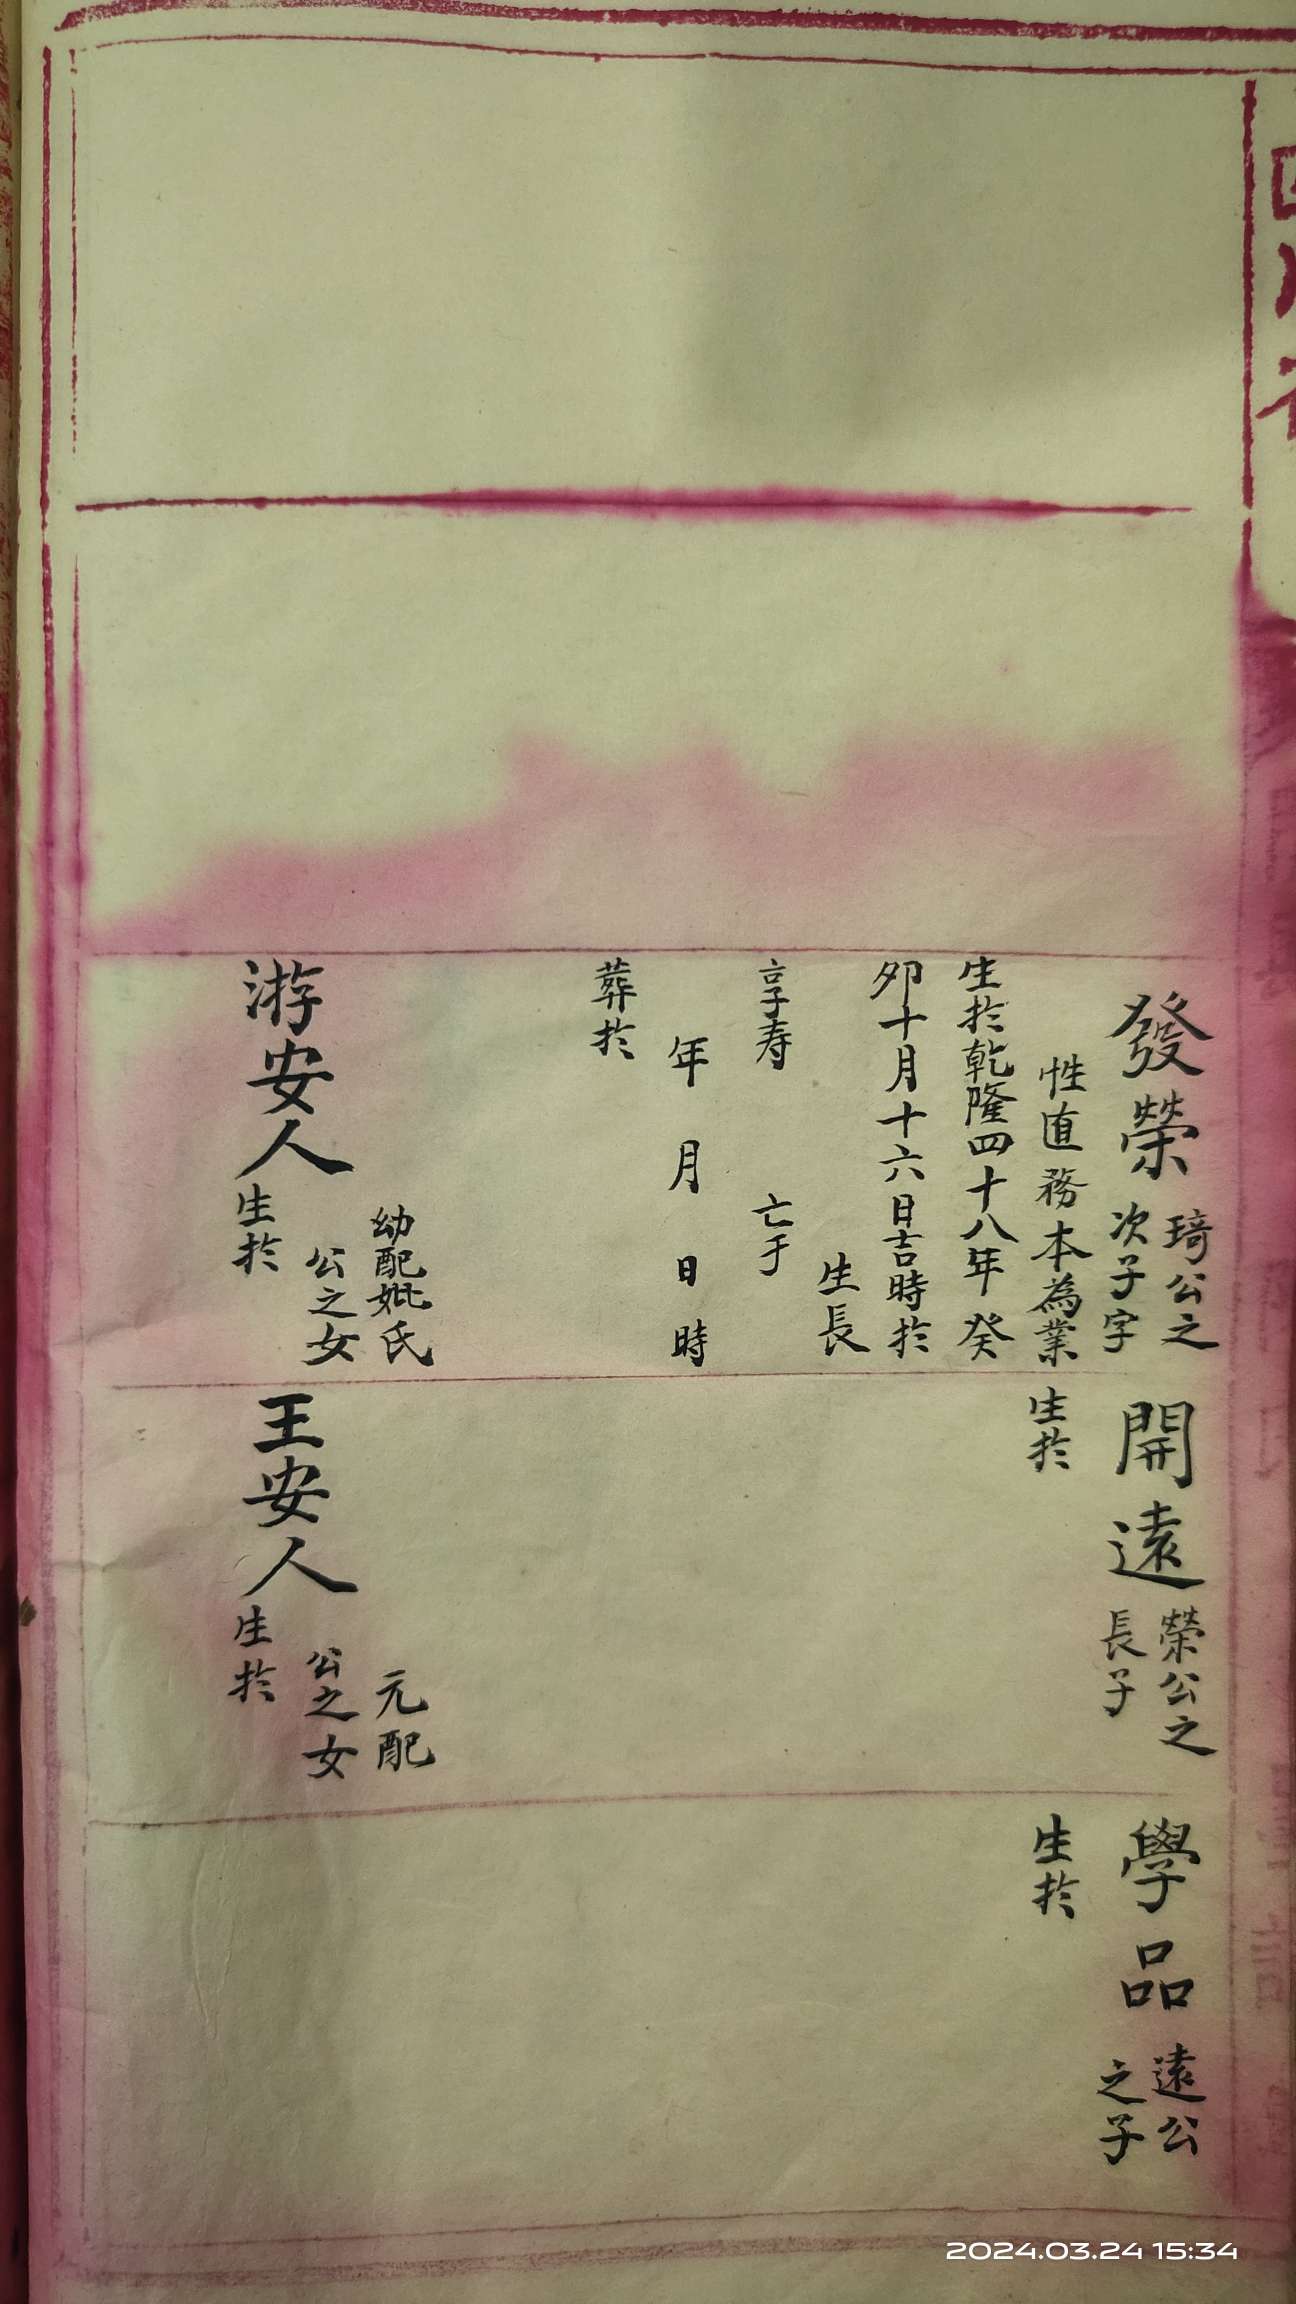 發榮
琦公之
次子字
性直務本為業
生於乾隆四十八年癸
卯十月十六日吉時於
生長
享寿 亡于
年 月 日 時
葬於
幼配妣氏
公之女
游安人
生於
開遠
榮公之
長子
生於
元配
公之女
王安人
生於
學品
遠公
之子
生於
2024.03.24 15:34